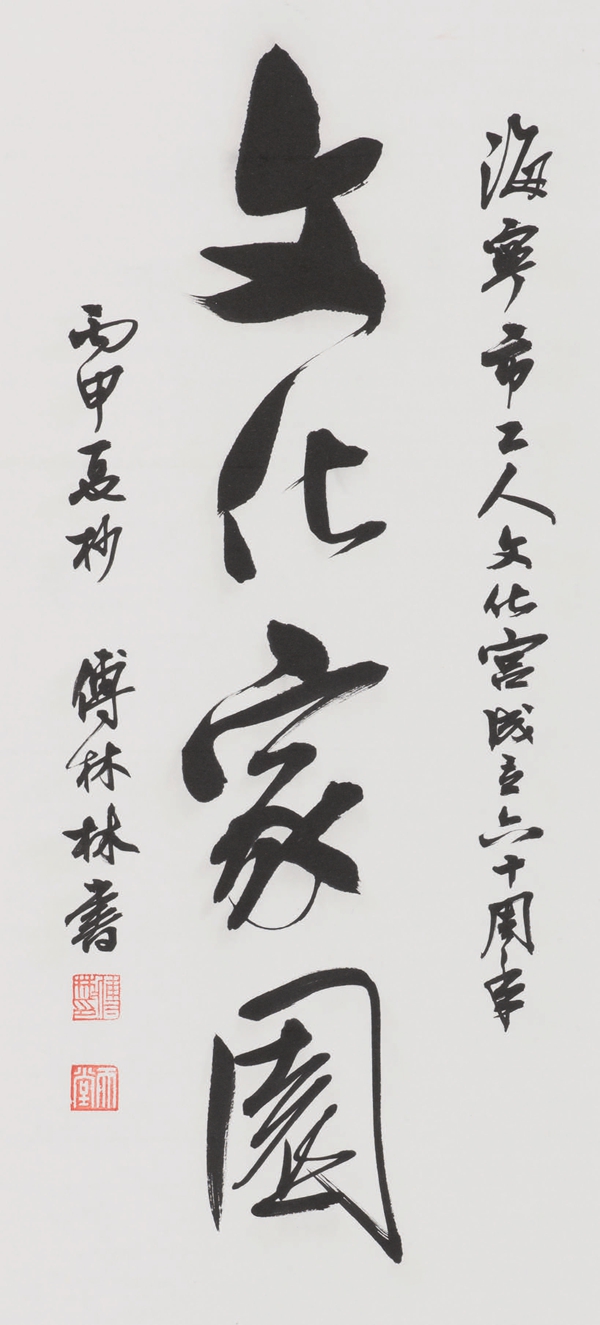 海寧市工人文化宮成立六十周年
文化家園
丙申夏杪 傅林林書